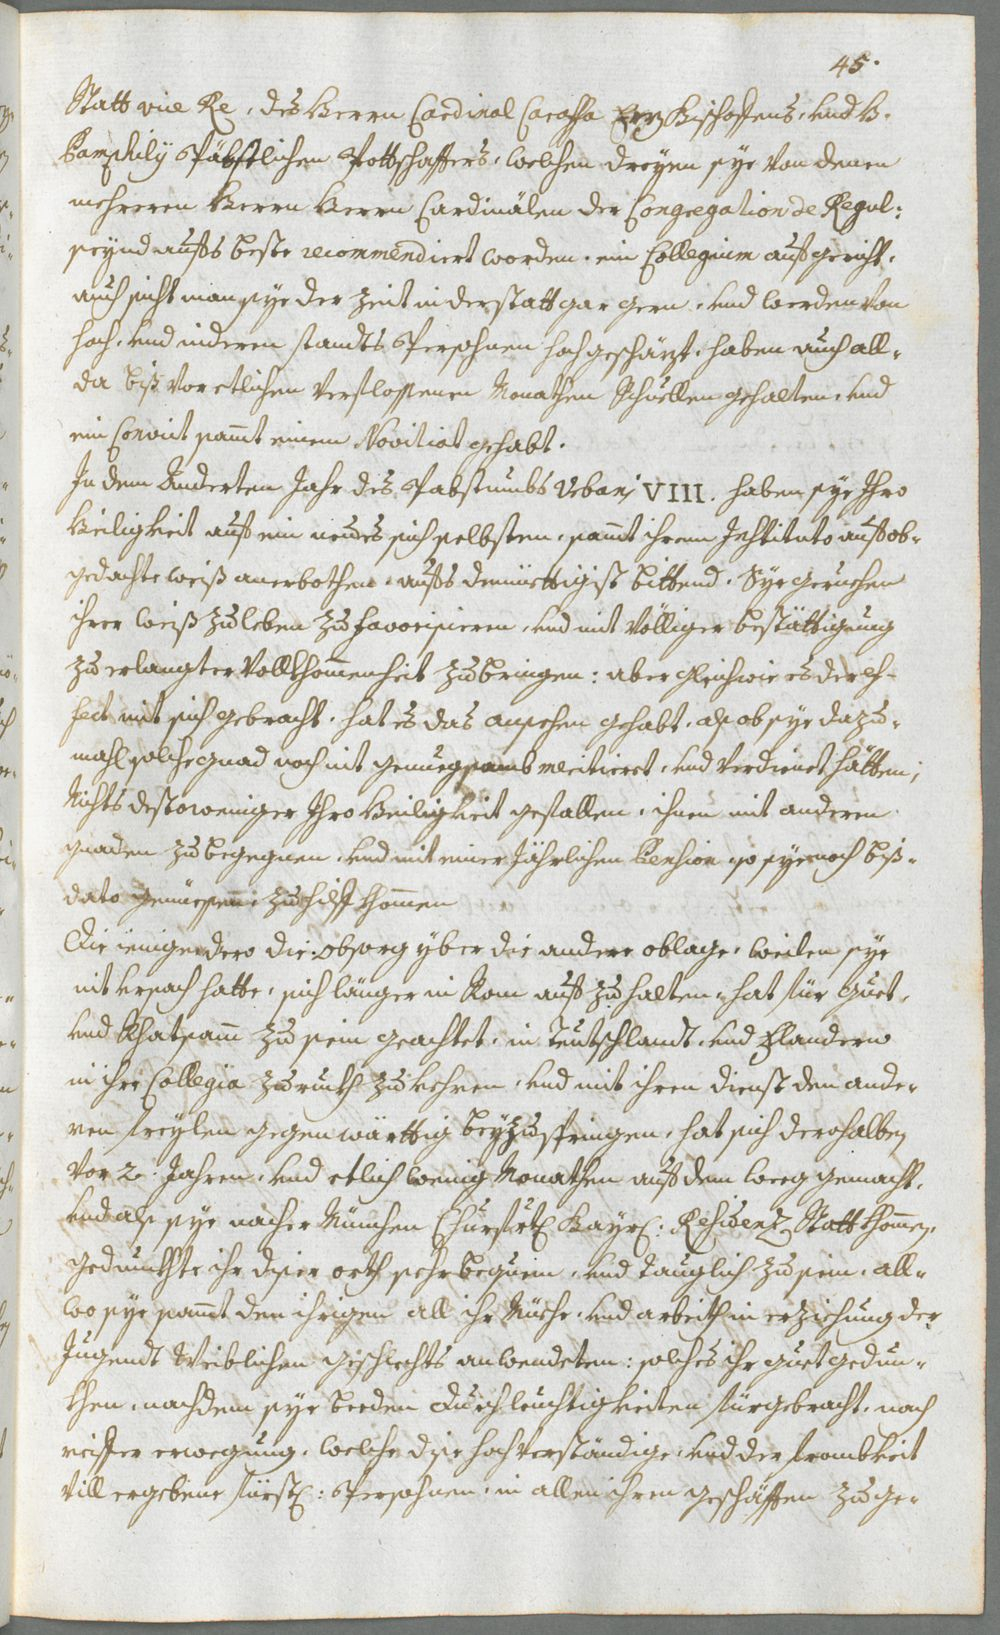 45.
Statt vice Re, des Herrn Cardinal Caraffa Erz Bischoffens, und H.
Pamphilÿ Päbstlichen Pottschaffters, welchen dreyen sye von denen
mehreren Herrn Herrn Cardinälen der Congregation de Regul:
seynd auffs beste recommendiert worden, ein Collegium auffgericht,
auch sicht man sye der Zeit in der statt gar gern, und werden von
hoch, und nideren standts Persohnen hochgeschäzt, haben auch all-
da biß vor etlichen verflossenen Monathen Schuellen gehalten, und
ein Convict sam̄t einem Novitiat gehabt.
In dem Anderten Jahr des Pabstumbs Urbani VIII. haben sye Ihro
Heiligkeit auff ein neües sich selbsten, sam̄t ihrem Institutò auff ob-
gedachte weiß anerbothen, auffs demüettigist bittend, Sye geruehen
ihrer weiß zu leben zu favorisieren, und mit völliger bestättigung
zu erlangter vollkhom̄enheit zu bringen: aber gleichwie es der ef-
fect mit sich gebracht, hat es das ansehen gehabt, als ob sye dazu-
mahl solche gnad noch nit genuegsamb meritieret, und verdienet hätten,
Nichts destoweniger Ihro Heiligkeit gefallen, ihnen mit anderen
gnaden zu begegnen, und mit einer Jährlichen Pension so sye noch biß-
dato genüessen, zu hilff khom̄en
Die ienige dero die obsorg yber die andere oblage, weilen sye
nit ursach hatte, sich länger in Rom auff zu halten, hat für guet,
und Rhatsam̄ zu sein geachtet, in Teutschlandt, und Flandern
in ihre Collegia zuruckh zu kehren, und mit ihren dienst den ande-
ren freylen gegenwärttig beyzuspringen, hat sich derohalben
vor 2. Jahren, und etlich wenig Monathen auff den weeg gemacht,
und als sye nacher München Churfürtl: Bayrl: Residentz Statt khom̄en,
gedunckhte ihr diser orth sehr bequem, und tauglich zu sein, all-
wo sye sam̄t den ihrigen all ihr Müehe, und arbeith in erziehung der
Jugendt Weiblichen geschlechts anwendeten: solches ihr guet gedun-
khen, nachdem sye beeden Durchleuchtigkeiten fürgebracht, nach
reiffer erwegung, welche dise hochverständige, und der frombkeit
vill ergebene fürstl: Persohnen, in allen ihren geschäfften zu ge-